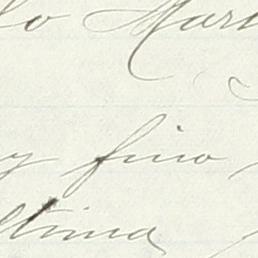 lo Mar
y fino
ltima